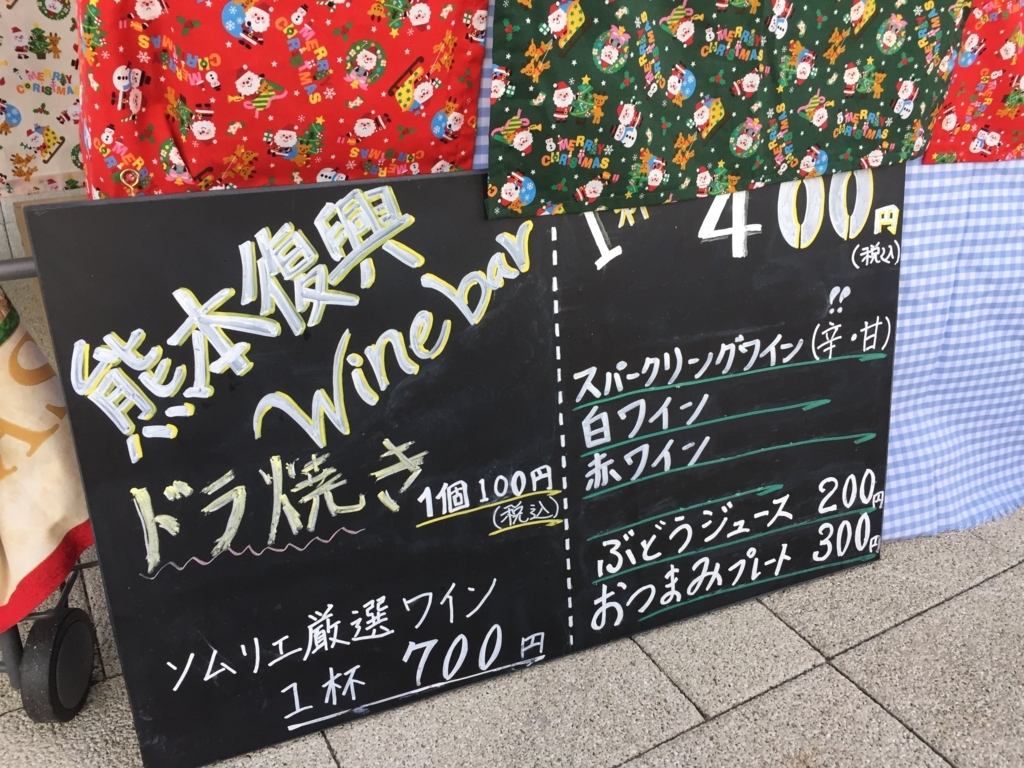 熊本復興
Wine bar
ドラ焼き
1個100円
(税込)
ソムリエ厳選ワイン
1杯 700円
1杯 400円
(税込)
!!
スパークリングワイン(辛・甘)
白ワイン
赤ワイン
ぶどうジュース 200円
おつまみプレート 300円
MERRY CHRISTMAS